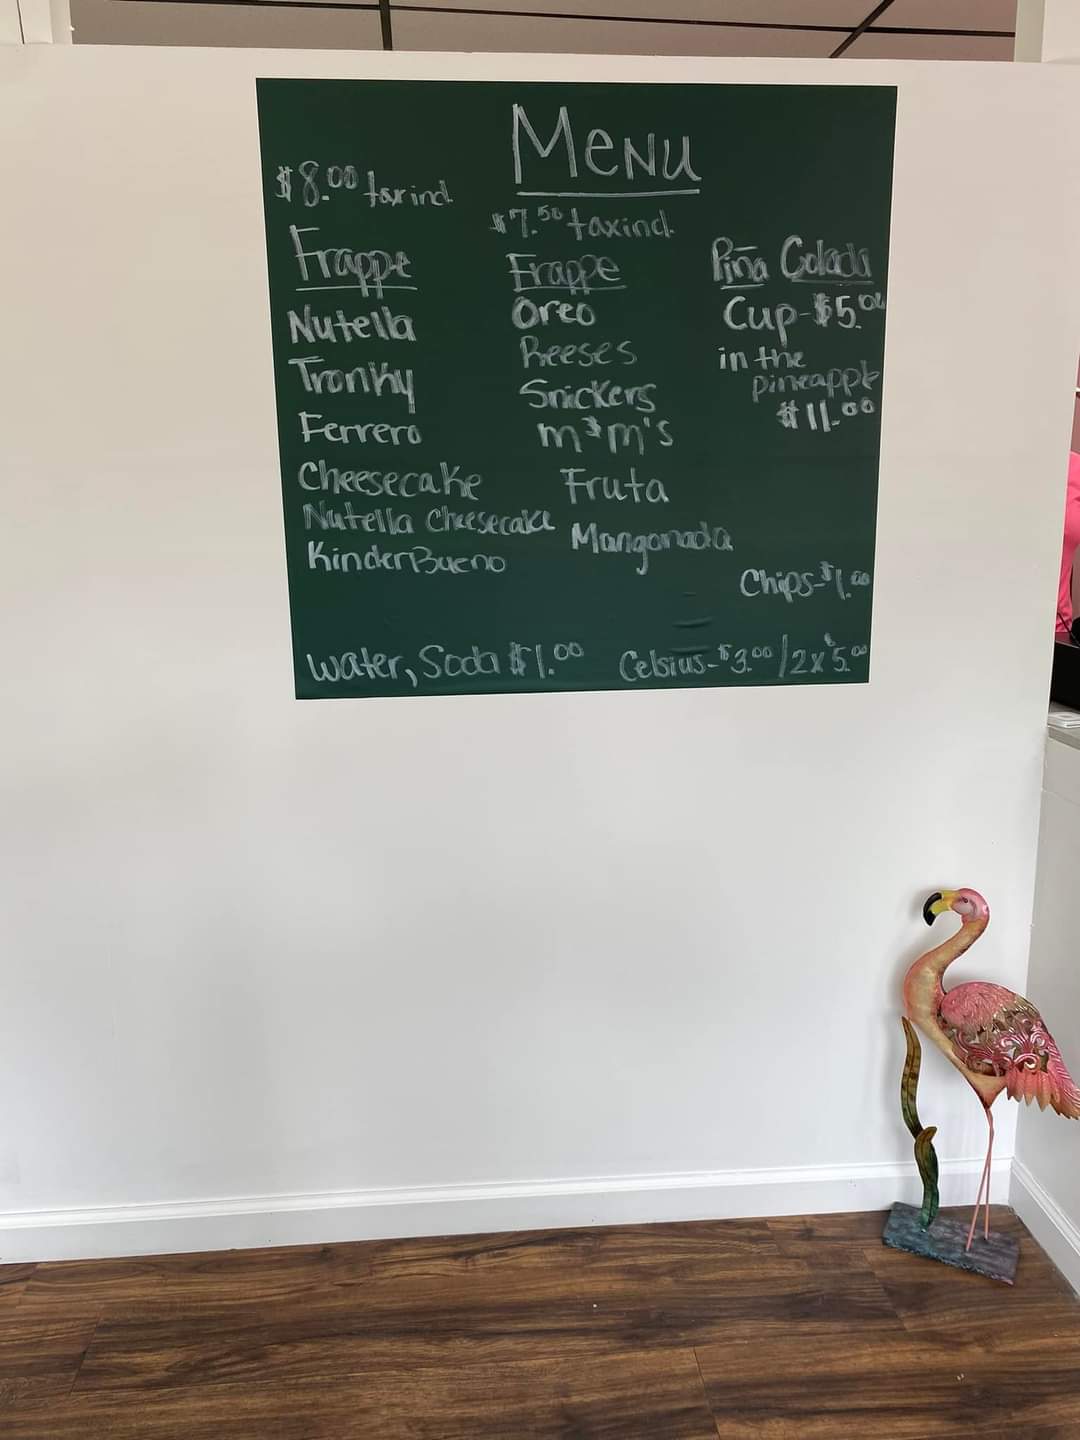 Menu
$8.00 tax incl.
Frappe
Nutella
Tronky
Ferrero
Cheesecake
Nutella Cheesecake
KinderBueno
$7.50 tax incl.
Frappe
Oreo
Reeses
Snickers
m&m's
Fruta
Mangonada
Piña Colada
Cup-$5.00
in the
pineapple
$11.00
Chips-$1.00
Water, Soda $1.00
Celsius-$3.00/2x$5.00